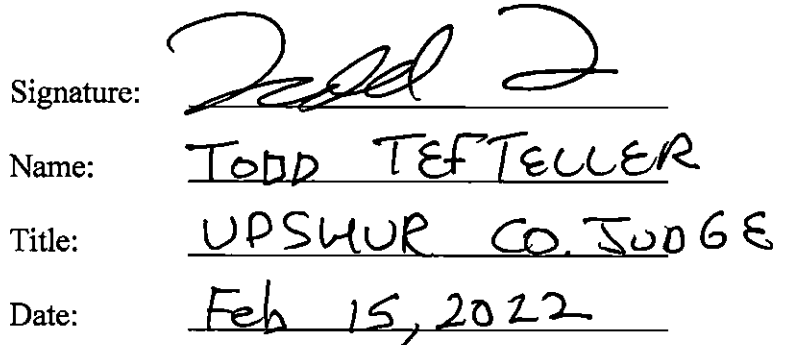 Signature: Todd
Name: TODD TEFTELLER
Title: UPSHUR CO. JUDGE
Date: Feb 15, 2022